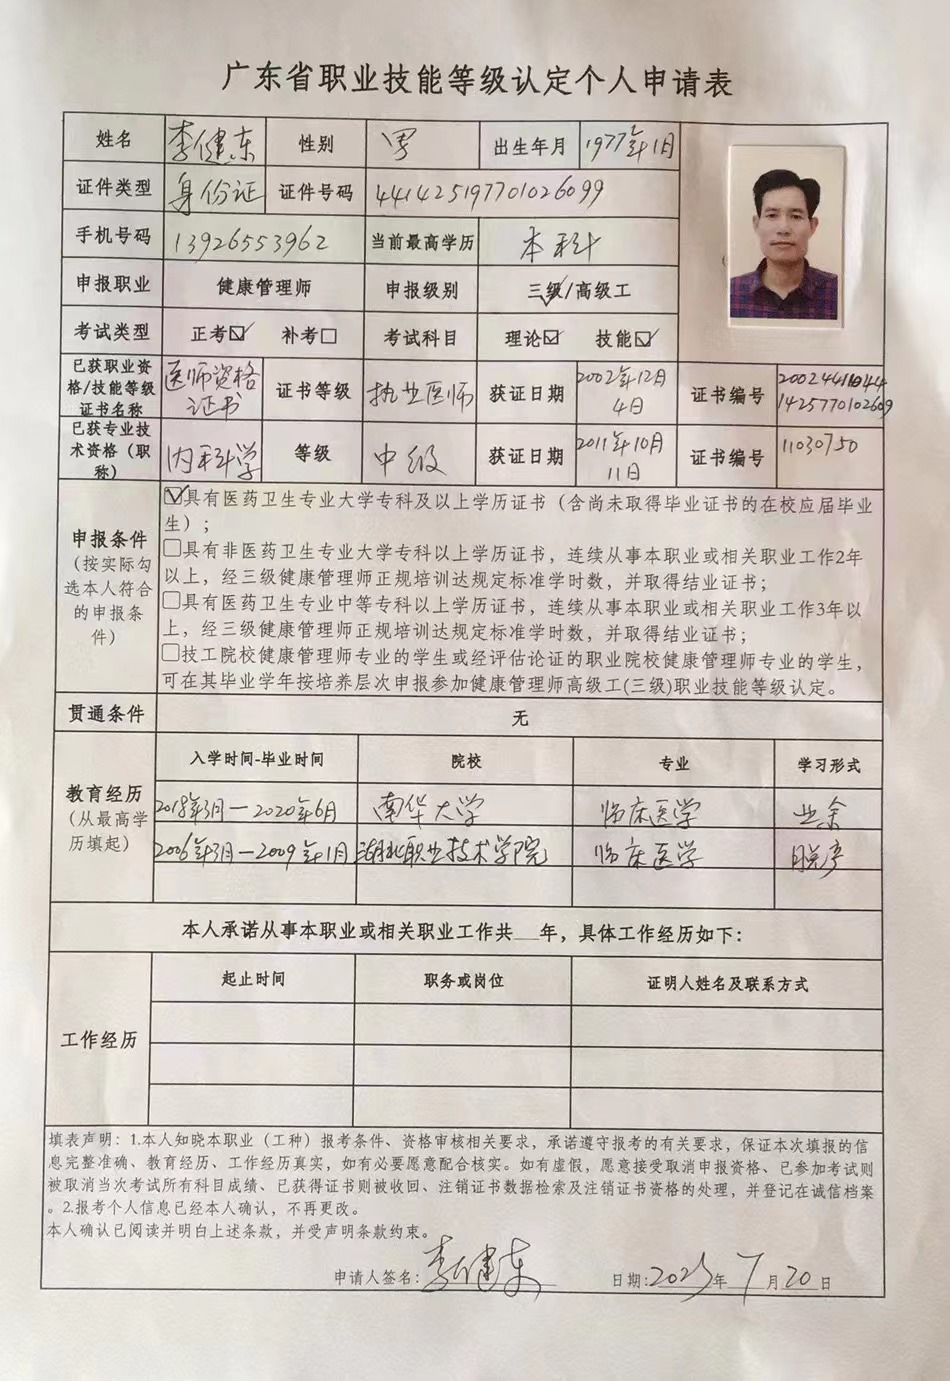 广东省职业技能等级认定个人申请表
姓名 李健东 性别 男 出生年月 1977年1月
证件类型 身份证 证件号码 441425197701026099
手机号码 13926553962 当前最高学历 本科
申报职业 健康管理师 申报级别 三级/高级工
考试类型 正考☑ 补考□ 考试科目 理论☑ 技能☑
已获职业资格/技能等级证书名称 医师资格证书 证书等级 执业医师 获证日期 2002年12月4日 证书编号
已获专业技术资格（职称） 内科学 等级 中级 获证日期 2011年10月11日 证书编号 11030750
申报条件（按实际勾选本人符合的申报条件）
☑具有医药卫生专业大学专科及以上学历证书（含尚未取得毕业证书的在校应届毕业
生）；
□具有非医药卫生专业大学专科以上学历证书，连续从事本职业或相关职业工作2年
以上，经三级健康管理师正规培训达规定标准学时数，并取得结业证书；
□具有医药卫生专业中等专科以上学历证书，连续从事本职业或相关职业工作3年以
上，经三级健康管理师正规培训达规定标准学时数，并取得结业证书；
□技工院校健康管理师专业的学生或经评估论证的职业院校健康管理师专业的学生，
可在其毕业学年按培养层次申报参加健康管理师高级工(三级)职业技能等级认定。
贯通条件 无
教育经历（从最高学历填起）
入学时间-毕业时间 院校 专业 学习形式
2018年3月—2020年6月 南华大学 临床医学 业余
2006年3月—2009年1月 湖北职业技术学院 临床医学 脱产
本人承诺从事本职业或相关职业工作共__年，具体工作经历如下：
工作经历
起止时间 职务或岗位 证明人姓名及联系方式
填表声明：1.本人知晓本职业（工种）报考条件、资格审核相关要求，承诺遵守报考的有关要求，保证本次填报的信
息完整准确、教育经历、工作经历真实，如有必要愿意配合核实。如有虚假，愿意接受取消申报资格、已参加考试则
被取消当次考试所有科目成绩、已获得证书则被收回、注销证书数据检索及注销证书资格的处理，并登记在诚信档案
。2.报考个人信息已经本人确认，不再更改。
本人确认已阅读并明白上述条款，并受声明条款约束。
申请人签名：李健东 日期:2023年 7月20日